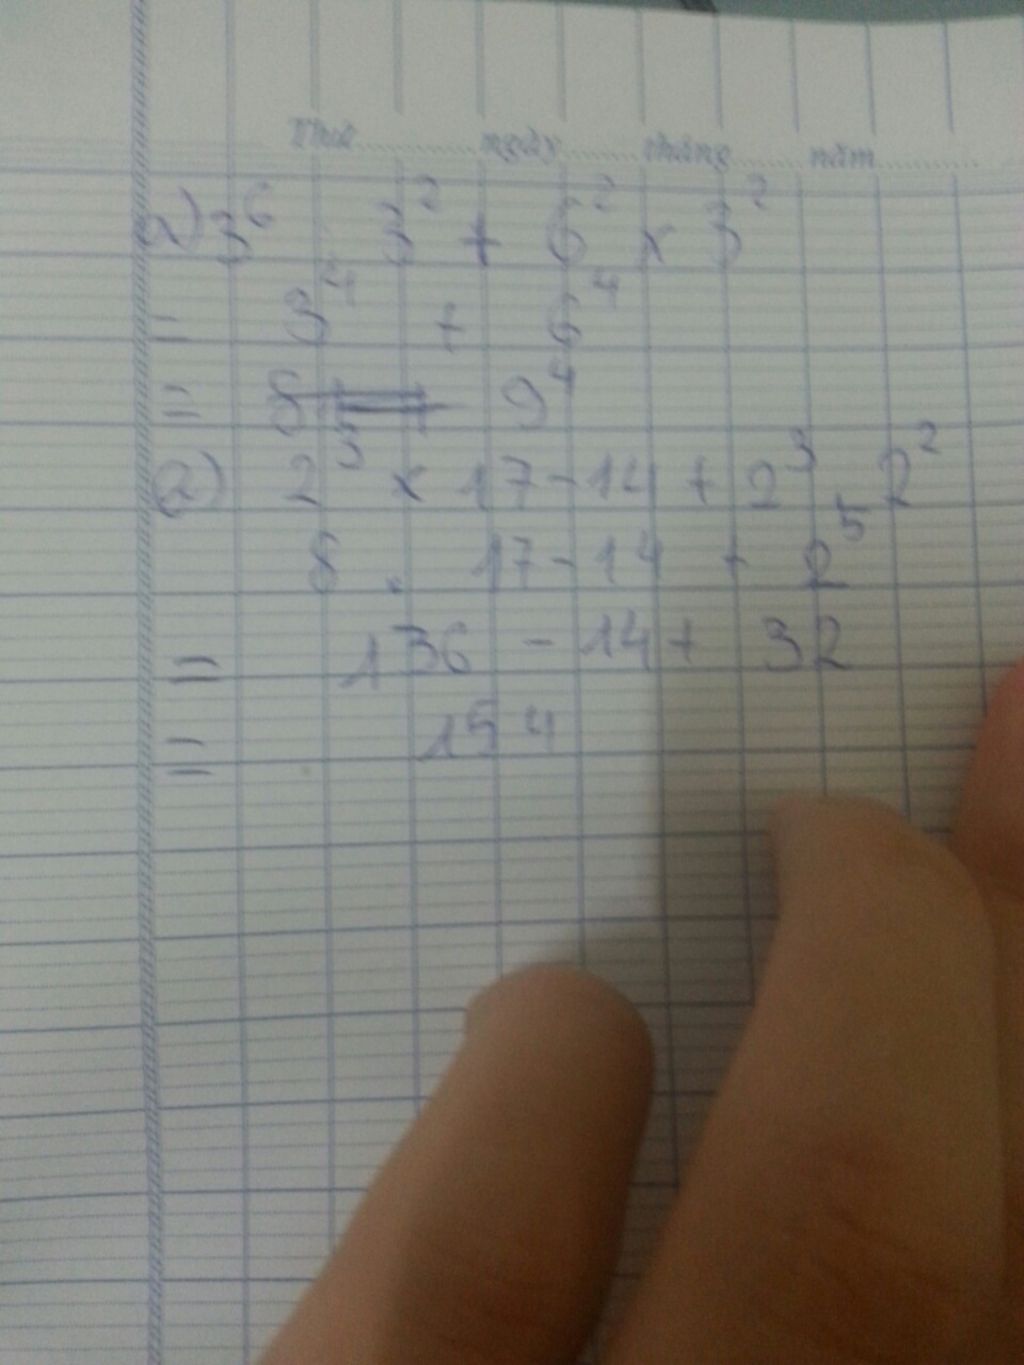 Thứ ............ ngày ......... tháng ......... năm ............
a) 3⁶ 3² + 6² x 3²
= 3⁴ + 6⁴
= 9⁴
a) 2³ x 17 - 14 + 2³ 2²
8 . 17 - 14 + 2⁵
= 136 - 14 + 32
= 154